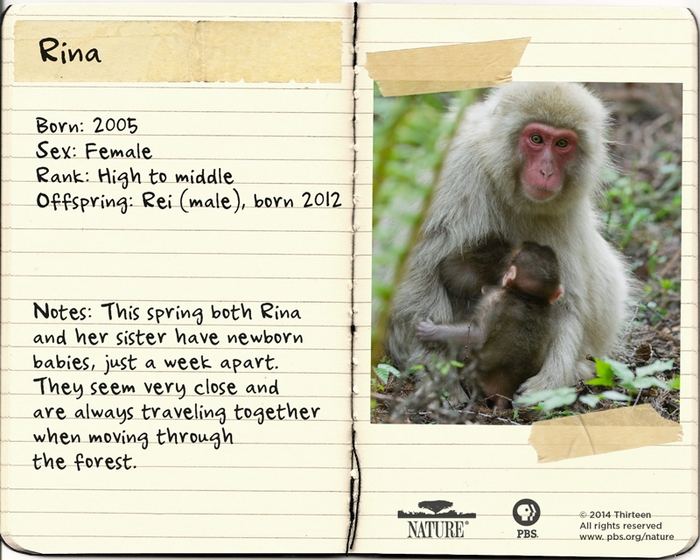 Rina
Born: 2005
Sex: Female
Rank: High to middle
Offspring: Rei (male), born 2012
Notes: This spring both Rina
and her sister have newborn
babies, just a week apart.
They seem very close and
are always traveling together
when moving through
the forest.
NATURE®
PBS.
© 2014 Thirteen
All rights reserved
www. pbs.org/nature